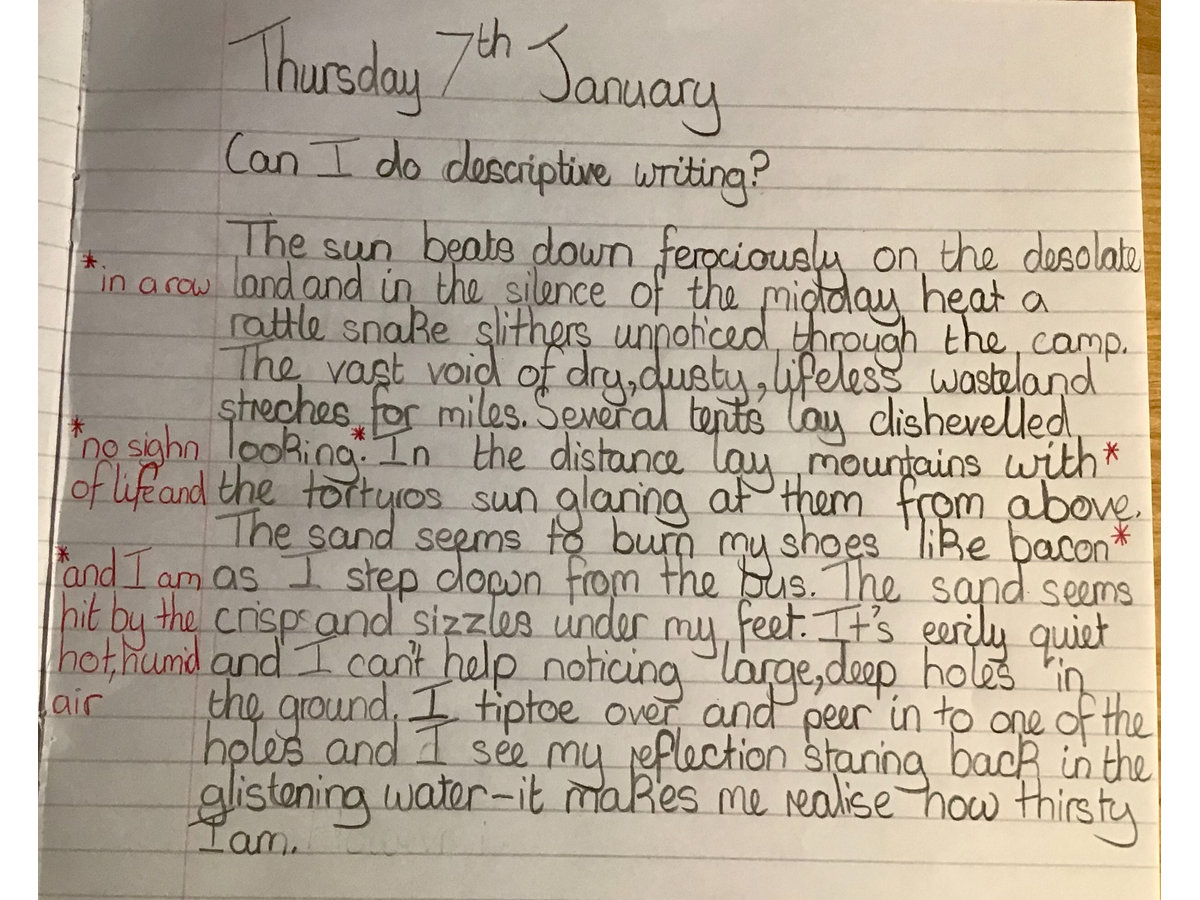 Thursday 7th January
Can I do descriptive writing?
The sun beats down ferociously on the desolate
*in a row land and in the silence of the midday heat a
rattle snake slithers unnoticed through the camp.
The vast void of dry, dusty, lifeless wasteland
streches for miles. Several tents lay dishevelled
*no sighn looking*. In the distance lay mountains with*
of life and the torturos sun glaring at them from above.
The sand seems to burn my shoes like bacon*
*and I am as I step down from the bus. The sand seems
hit by the crisps and sizzles under my feet. It's eerily quiet
hot, humid and I can't help noticing large, deep holes in
air the ground. I tiptoe over and peer in to one of the
holes and I see my reflection staring back in the
glistening water-it makes me realise how thirsty
I am.